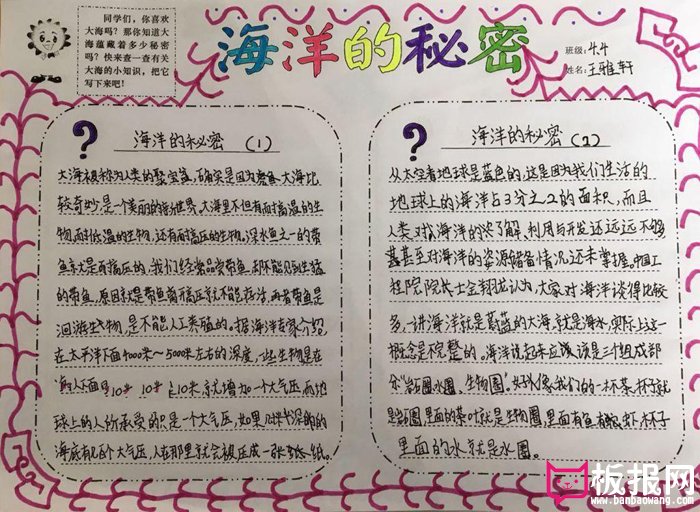 同学们，你喜欢
大海吗？那你知道大
海蕴藏着多少秘密
吗？快来查一查有关
大海的小知识，把它
写下来吧！
海洋的秘密
班级：4.4
姓名：王雅轩
海洋的秘密（1）
大海被称为人类的聚宝盆，确实是因为 大海比
较奇妙，是一个美丽的 世界。大海里不但有耐高温的生
物，而耐低温的生物，还有耐高压的生物，深水鱼之一的带
鱼就是耐高压的，我们经常品尝带鱼，却不能见到生猛
的带鱼，原因就是带鱼离开高压就不能存活，再者带鱼是
洄游生物，是不能人工养殖的。据海洋专家介绍，
在太平洋下面4000米～5000米左右的深度，一些生物是在
10米 10米 10米，就增加一个大气压，而地
球上的人所承受的只是一个大气压，如果
海底有 个大气压，人在那里就会被压成一张 纸。
海洋的秘密（2）
从太空看地球是蓝色的，这是因为我们生活的
地球上的海洋占3分之2的面积，而且
人类对海洋的 了解、利用与开发还远远不够
甚至对海洋的资源储备情况还未掌握。中国工
程院院士金翔龙认为，大家对海洋谈得比较
多，一讲海洋就是蔚蓝的大海，就是海水，实际上这一
概念是不完整的。海洋说起来应该是三个组成部
分“岩石圈、水圈、生物圈”。好像我们的一杯茶，杯子就
是岩石圈，里面的茶叶就是生物圈，里面有鱼 虾，杯子
里面的水就是水圈。
板报网
www.banbaowang.com